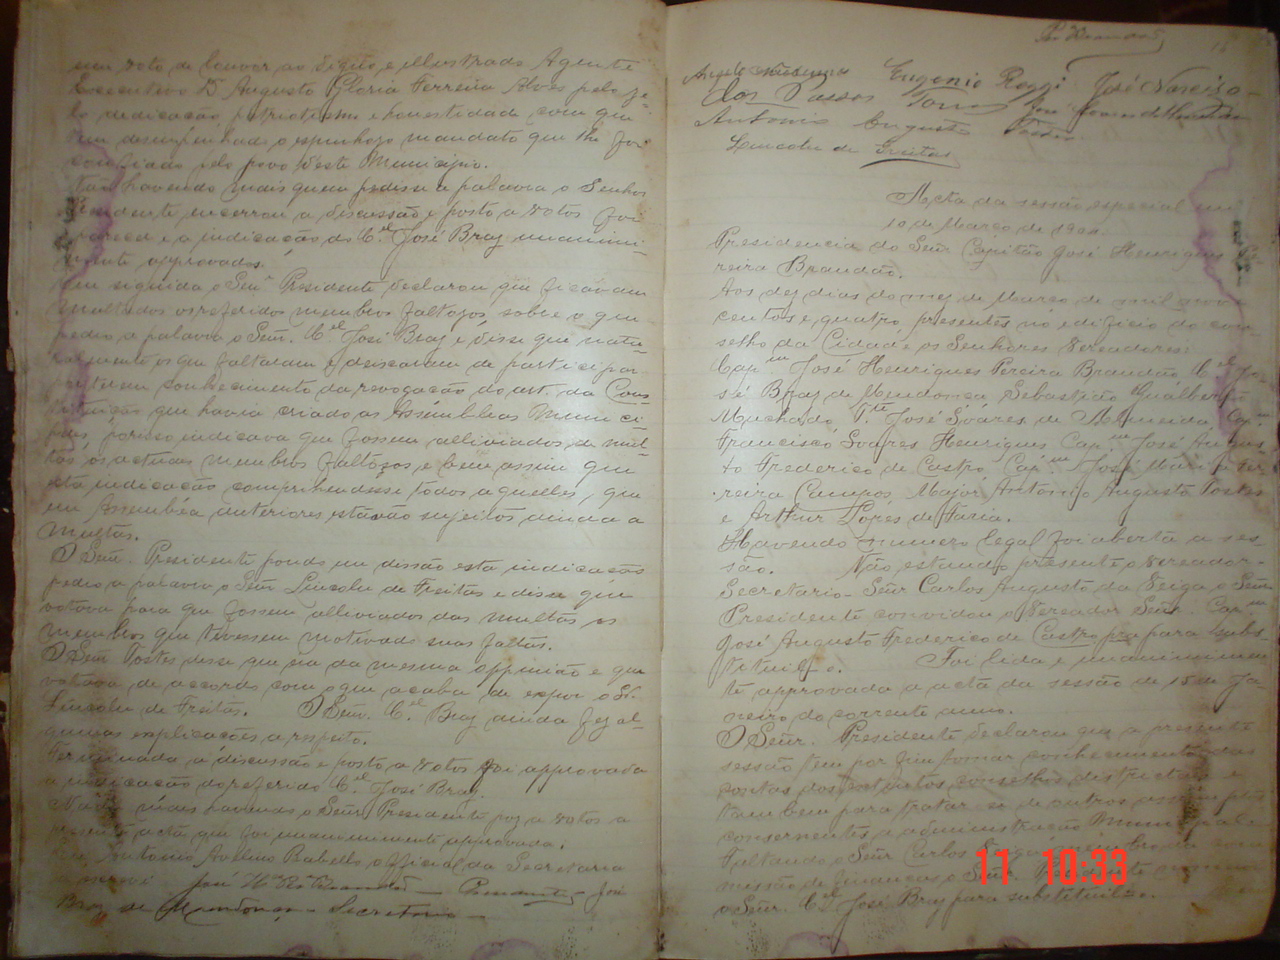 um voto de louvor ao digno e illustrado Agente
Executivo Dr Augusto Gloria Ferreira Alves pelo ze-
lo dedicação, patriotismo e honestidade com que
tem desempenhado o espinhozo mandato que lhe foi
confiado pelo povo deste Municipio.
Não havendo mais quem pedisse a palavra o Senhor
Presidente encerrou a discussão e posto a votos foi
a indicação do Cel José Braz unanimi-
mente approvados.
Em seguida o Señr Presidente declarou que ficavam
multados os referidos membros faltozos, sobre o que
pedio a palavra o Señr. Cel José Braz e disse que natu-
ralmente os que faltaram e deixaram de participar
conhecimento da revogação do art. da Cons-
tituição que havia criado as Assembleas Munici-
paes, por isso indicava que fossem alliviados de mul-
tas os actuaes membros faltozos e bem assim que
esta indicação comprehendesse todos aquelles, que
em Assembléa anteriores estavão sujeitos ainda a
multas.
O Señr. Presidente pondo em dissão esta indicação
pedio a palavra o Señr Lincoln de Freitas e disse que
votava para que fossem alliviados das multas os
membros que tivessem motivado suas faltas.
O Señr Tostes disse que era da mesma oppinião e que
votava de accordo com o que acaba de expor o Sr.
Lincoln de Freitas. O Señr. Cel Braz ainda fez al-
gumas explicações a respeito.
Terminada a discussão e posto a votos foi approvada
a indicação do referido Cel José Braz.
Nada mais havendo o Señr Presidente poz a votos a
presente acta que foi unanimimente approvada.
Eu Antonio Avelino Rabello, official da Secretaria
a escrevi José Hes Pera Brandão - Presidente - José
Braz de Mendonça - Secretario -
Pa Brandão
Angelo Eugenio Reggi José Narcizo
dos Passos José Soares de Almeida
Antonio Augusto Tostes
Lincoln de Freitas
Acta da sessão especial em
10 de Março de 1904.
Presidencia do Señr Capitão José Henriques Pe-
reira Brandão.
Aos dez dias do mez de Março de mil nove
centos e quatro, presentes no edificio do con-
selho da Cidade os Senhores Vereadores:
Capm José Henriques Pereira Brandão, Cel Jo-
sé Braz de Mendonça Sebastião Gualberto
Machado, Tte José Soares de Almeida, Capm
Francisco Soares Henriques Capm José Augus-
to Frederico de Castro, Capm José Maria Fer-
reira Campos, Major Antonio Augusto Tostes
e Arthur Lopes de Faria.
Havendo numero legal foi aberta a ses-
são. Não estando presente o vereador-
Secretario - Señr Carlos Augusto da Veiga o Señr
Presidente convidou o Vereador Señr. Capm
José Augusto Frederico de Castro para subs-
tituil-o. Foi lida e unanimimen-
te approvada a acta da sessão de 15 de Ja-
neiro do corrente anno.
O Señr. Presidente declarou que a presente
sessão tem por fim tomar conhecimento das
contas dos conselhos districtaes e
tambem para tratar-se de outros assumptos
consernentes a administração Municipal.
Faltando o Señr Carlos com-
missão de finanças o Señr Presidente
o Señr. Cel José Braz para substituil-o.
11 10:33